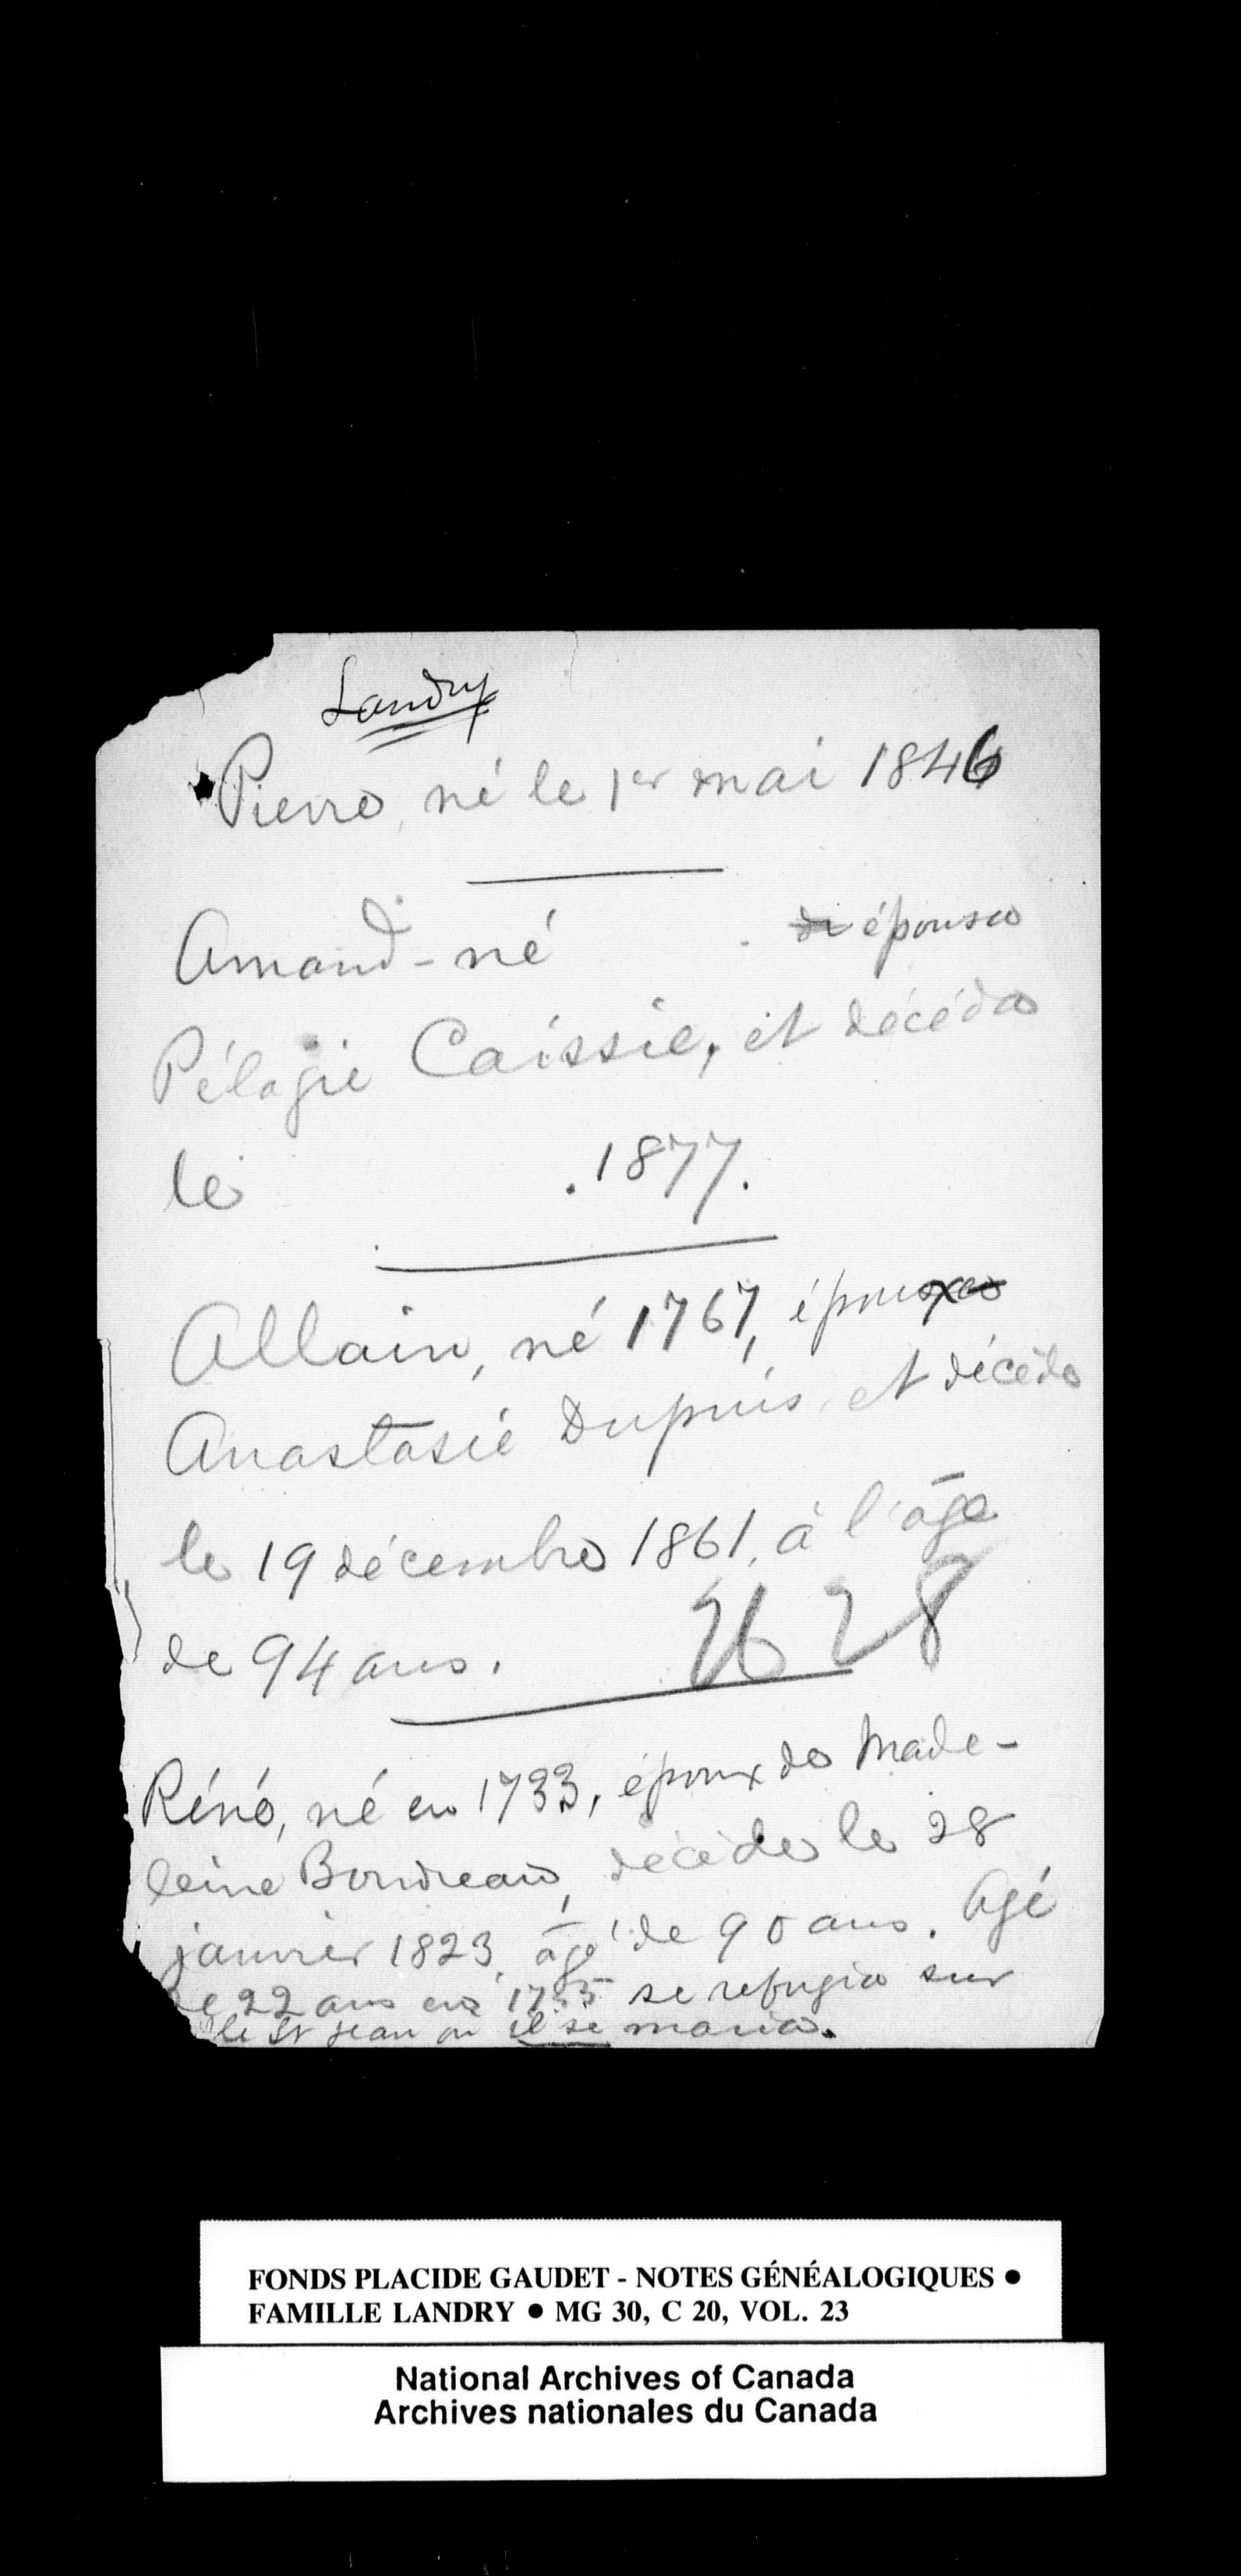 Landry
Pierre, né le 1er mai 1846
Amand - né . épousa
Pélagie Caissie, et décéda
le .1877.
Allain, né 1767, époux
Anastasie Dupuis, et décéda
le 19 décembre 1861, à l'âge
de 94 ans.
26 28
Réné, né en 1733, époux de Made-
leine Boudreau, décédée le 28
janvier 1823, âgé de 90 ans. Agé
de 22 ans en 1755 se refugia sur
le St Jean ou il se maria.
FONDS PLACIDE GAUDET - NOTES GÉNÉALOGIQUES ●
FAMILLE LANDRY ● MG 30, C 20, VOL. 23
National Archives of Canada
Archives nationales du Canada